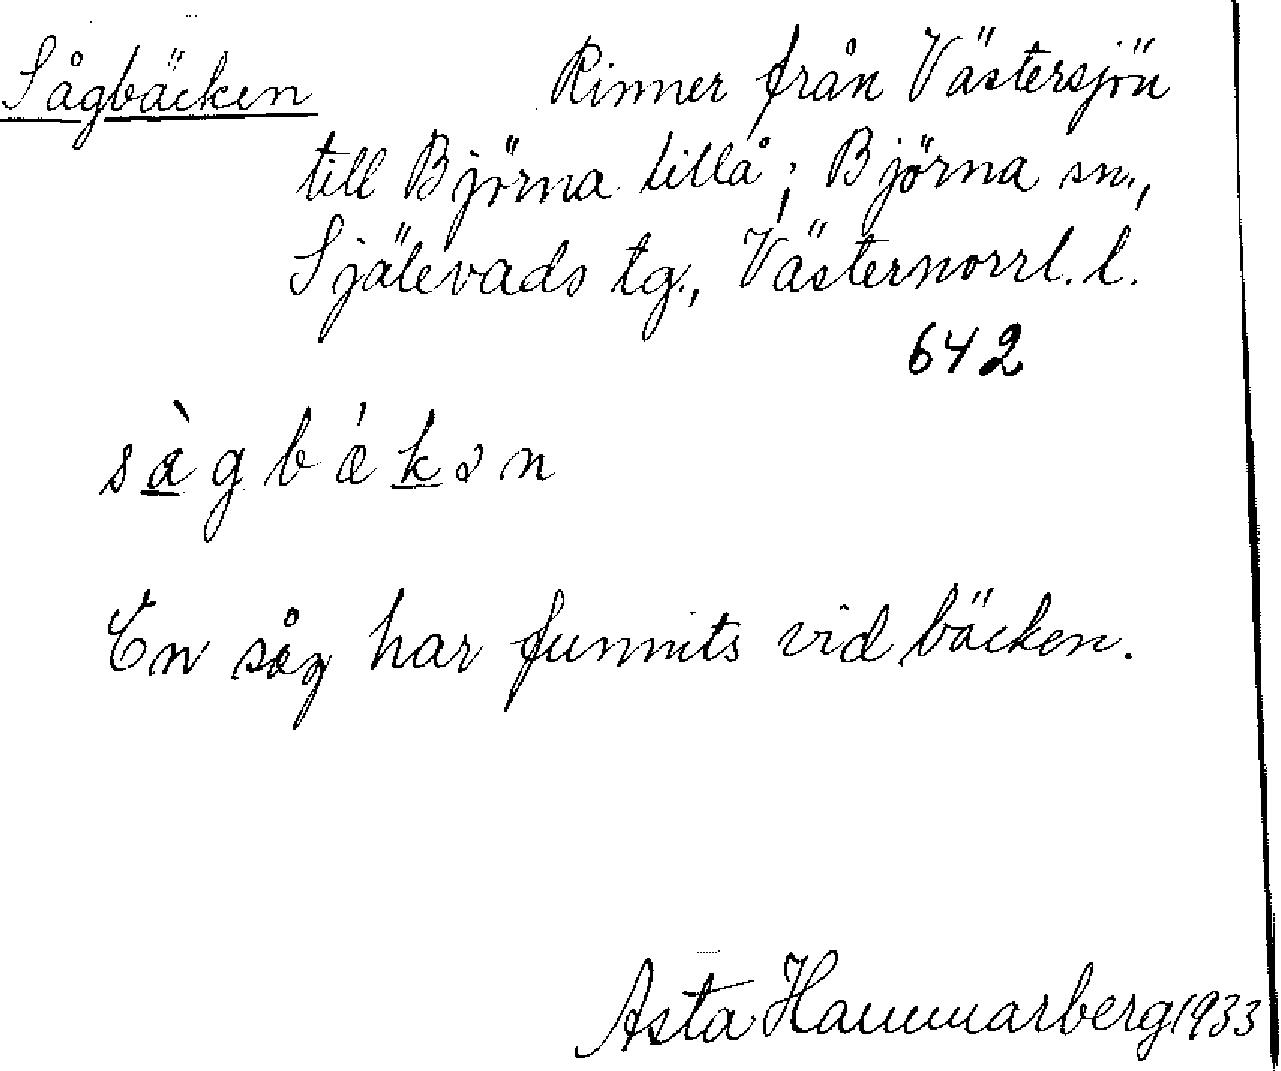 Sågbäcken Rinner från Västersjön
till Björna lillå; Björna sn.,
Själevads tg., Västernorrl. l.
642
sàgbǽkən
En såg har funnits vid bäcken.
Asta Hammarberg 1933